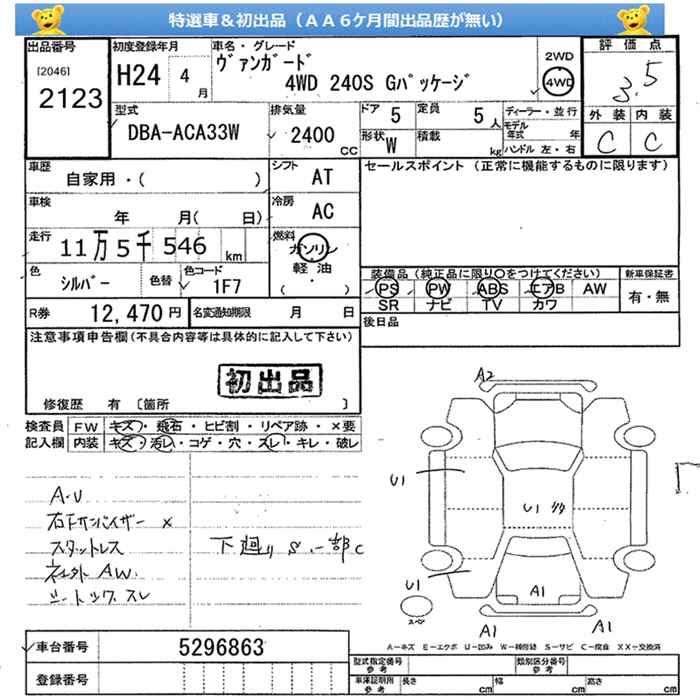 特選車＆初出品（ＡＡ６ケ月間出品歴が無い）
出品番号 初度登録年月 車名・グレード 評価点
[2046] 2123
H24 4 月
ヴァンガード
4WD 240S Gパッケージ
2WD
4WD
3.5
外装 内装
C C
型式 DBA-ACA33W
排気量 2400 CC
ドア 5 定員 5 人
形状 W 積載 kg
ディーラー・並行
モデル年式 年
ハンドル 左・右
車歴 自家用・( )
シフト AT
セールスポイント（正常に機能するものに限ります）
車検 年 月( 日)
冷房 AC
走行 11万5千546 km
燃料 ガソリン
軽油
( )
色 シルバー 色替 色コード 1F7
装備品（純正品に限り○をつけてください） 新車保証書
PS PW ABS エアB AW 有・無
SR ナビ TV カワ
R券 12,470 円 名変通知期限 月 日
後日品
注意事項申告欄(不具合内容等は具体的に記入して下さい)
初出品
修復歴 有 〔箇所 〕
検査員記入欄
FW キズ・飛石・ヒビ割・リペア跡・×要
内装 キズ・汚れ・コゲ・穴・スレ・キレ・破レ
A・U
右下サンバイザー ×
スタットレス
社外 AW
シートックスレ
下廻り S、一部C
A2
U1
U1
U1
A1
A1
A1
スペア
A－キズ E－エクボ U－凹み W－補修跡 S－サビ C－腐食 XX－交換済
車台番号 5296863
登録番号
型式指定番号 参考 類別区分番号 参考
車庫証明用 参考 長さ cm 幅 cm 高さ cm